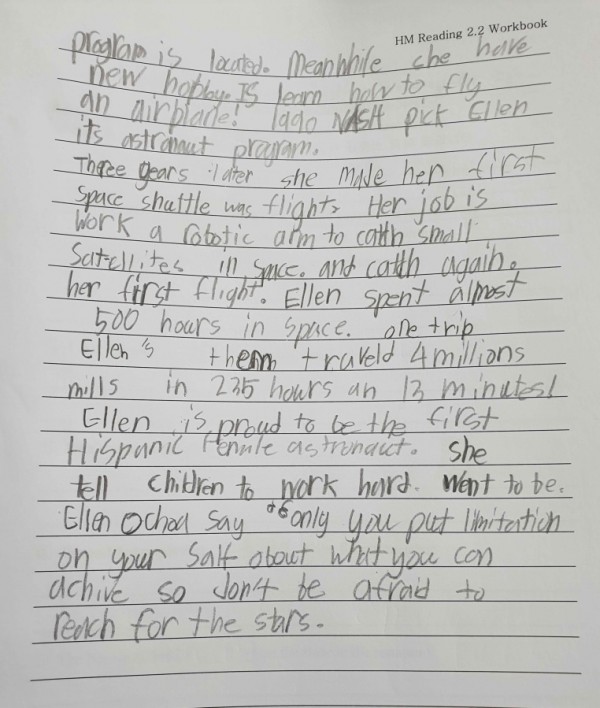 HM Reading 2.2 Workbook
program is located. Meanwhile che have
new hobby. IS learn how to fly
an airplane! 1990 NASA pick Ellen
its astronaut program.
Three years later she made her first
space shuttle was flight. Her job is
work a robotic arm to catth small
Satellites in space. and catth again.
her first flight. Ellen spent almost
500 hours in space. one trip
Ellen's them traveld 4 millions
mills in 235 hours an 13 minutes!
Ellen is proud to be the first
Hispanic female astronaut. She
tell children to work hard. Went to be.
Ellen Ochoa say "only you put limitation
on your Salf about what you can
achive so don't be afraid to
reach for the stars.